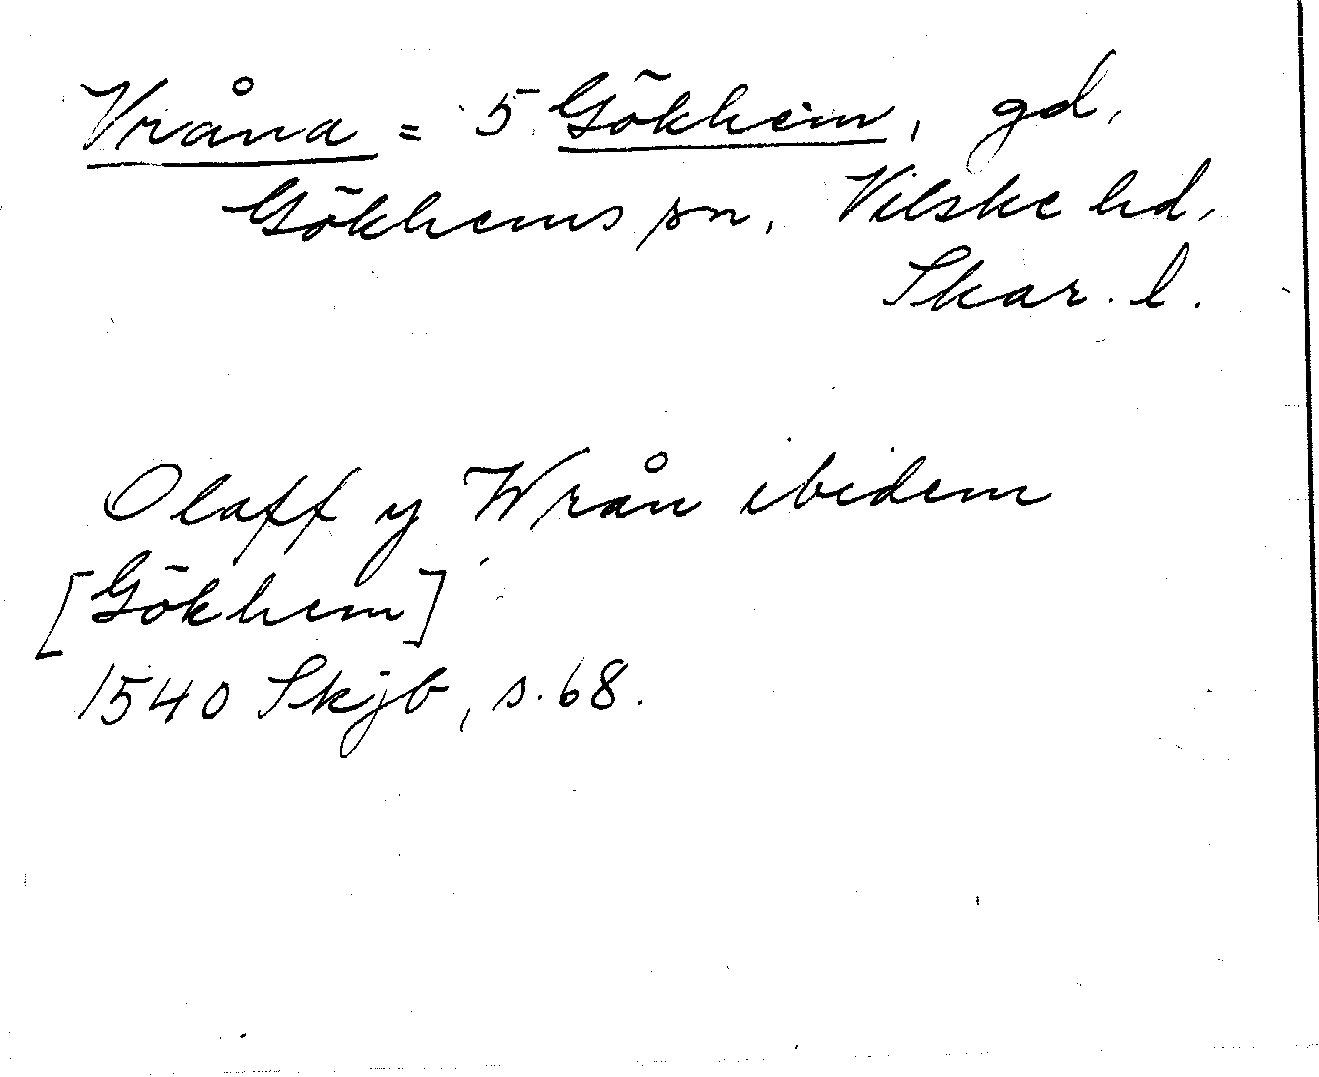 Vråna = 5 Gökhem, gd,
Gökhems sn, Vilske hd,
Skar. l.
Olaff y Wrån ibidem
[Gökhem]
1540 Skjb, s. 68.